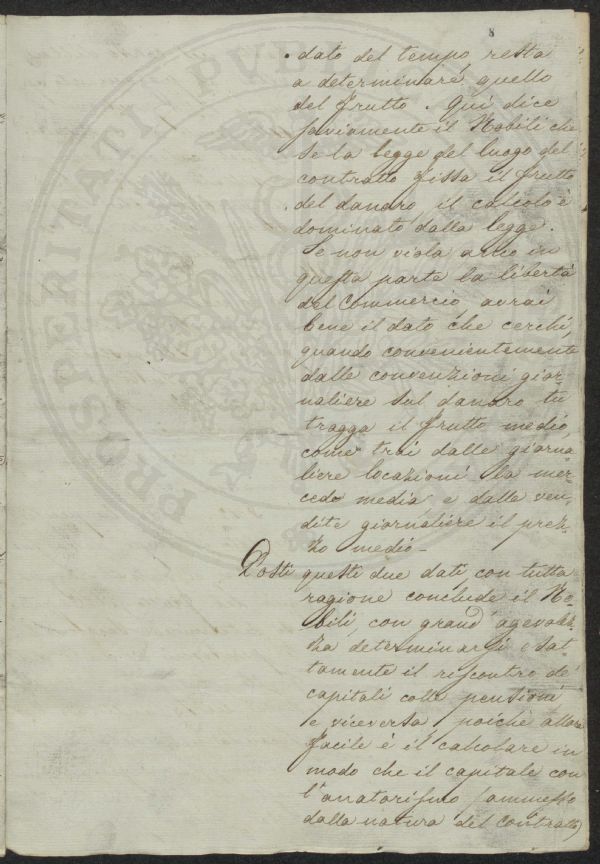 8
dato del tempo, resta
a determinare quello
del frutto. Qui dice
saviamente il Nobili che
se la legge del luogo del
contratto fissa il frutto
del danaro il calcolo è
dominato dalla legge.
Se non viola altro in
questa parte la libertà
del Commercio avrai
bene il dato che cerchi,
quando convenientemente
dalle convenzioni gior-
naliere sul danaro tu
tragga il frutto medio,
come trai dalle giorna-
liere locazioni la mer-
cede media, e dalle ven-
dite giornaliere il prez-
zo medio -
Posti questi due dati, con tutta
ragione conclude il No-
bili, con grand'agevolez-
za determinarsi esat-
tamente il riscontro de'
capitali colle pensioni
e viceversa, poichè allora
facile è il calcolare in
modo che il capitale con
l'anatocismo (ammesso
dalla natura del contratto)
PROSPERITATI PVB